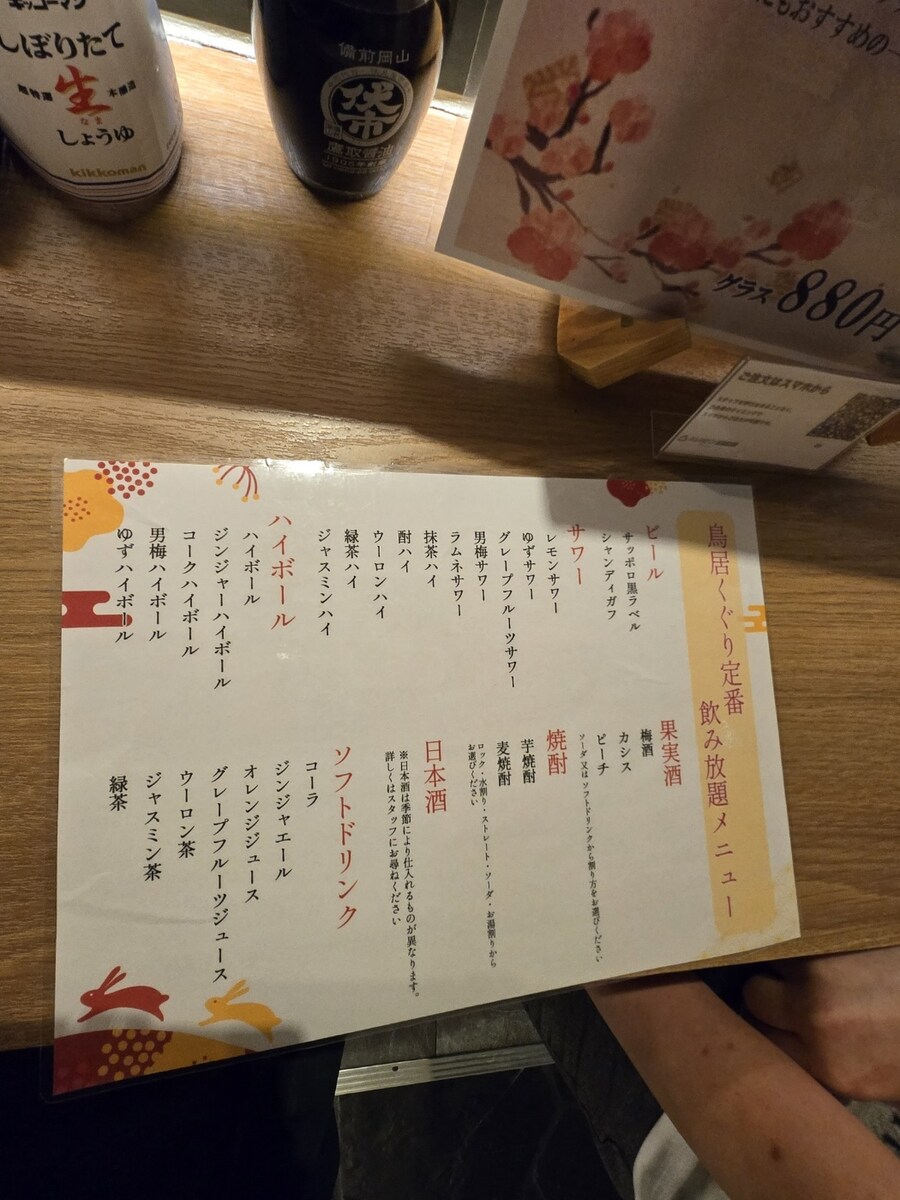 キッコーマン
しぼりたて
生
なま
超特選
本醸造
しょうゆ
kikkoman
備前岡山
鷹取醤油
にもおすすめの一
グラス 880円
ご注文はスマホから
鳥居くぐり定番
飲み放題メニュー
ビール
サッポロ黒ラベル
シャンディガフ
サワー
レモンサワー
ゆずサワー
グレープフルーツサワー
男梅サワー
ラムネサワー
抹茶ハイ
酎ハイ
ウーロンハイ
緑茶ハイ
ジャスミンハイ
ハイボール
ハイボール
ジンジャーハイボール
コークハイボール
男梅ハイボール
ゆずハイボール
果実酒
梅酒
カシス
ピーチ
ソーダ又はソフトドリンクから割り方をお選びください
焼酎
芋焼酎
麦焼酎
ロック・水割り・ストレート・ソーダ・お湯割りから
お選びください
日本酒
※日本酒は季節により仕入れるものが異なります。
詳しくはスタッフにお尋ねください
ソフトドリンク
コーラ
ジンジャエール
オレンジジュース
グレープフルーツジュース
ウーロン茶
ジャスミン茶
緑茶